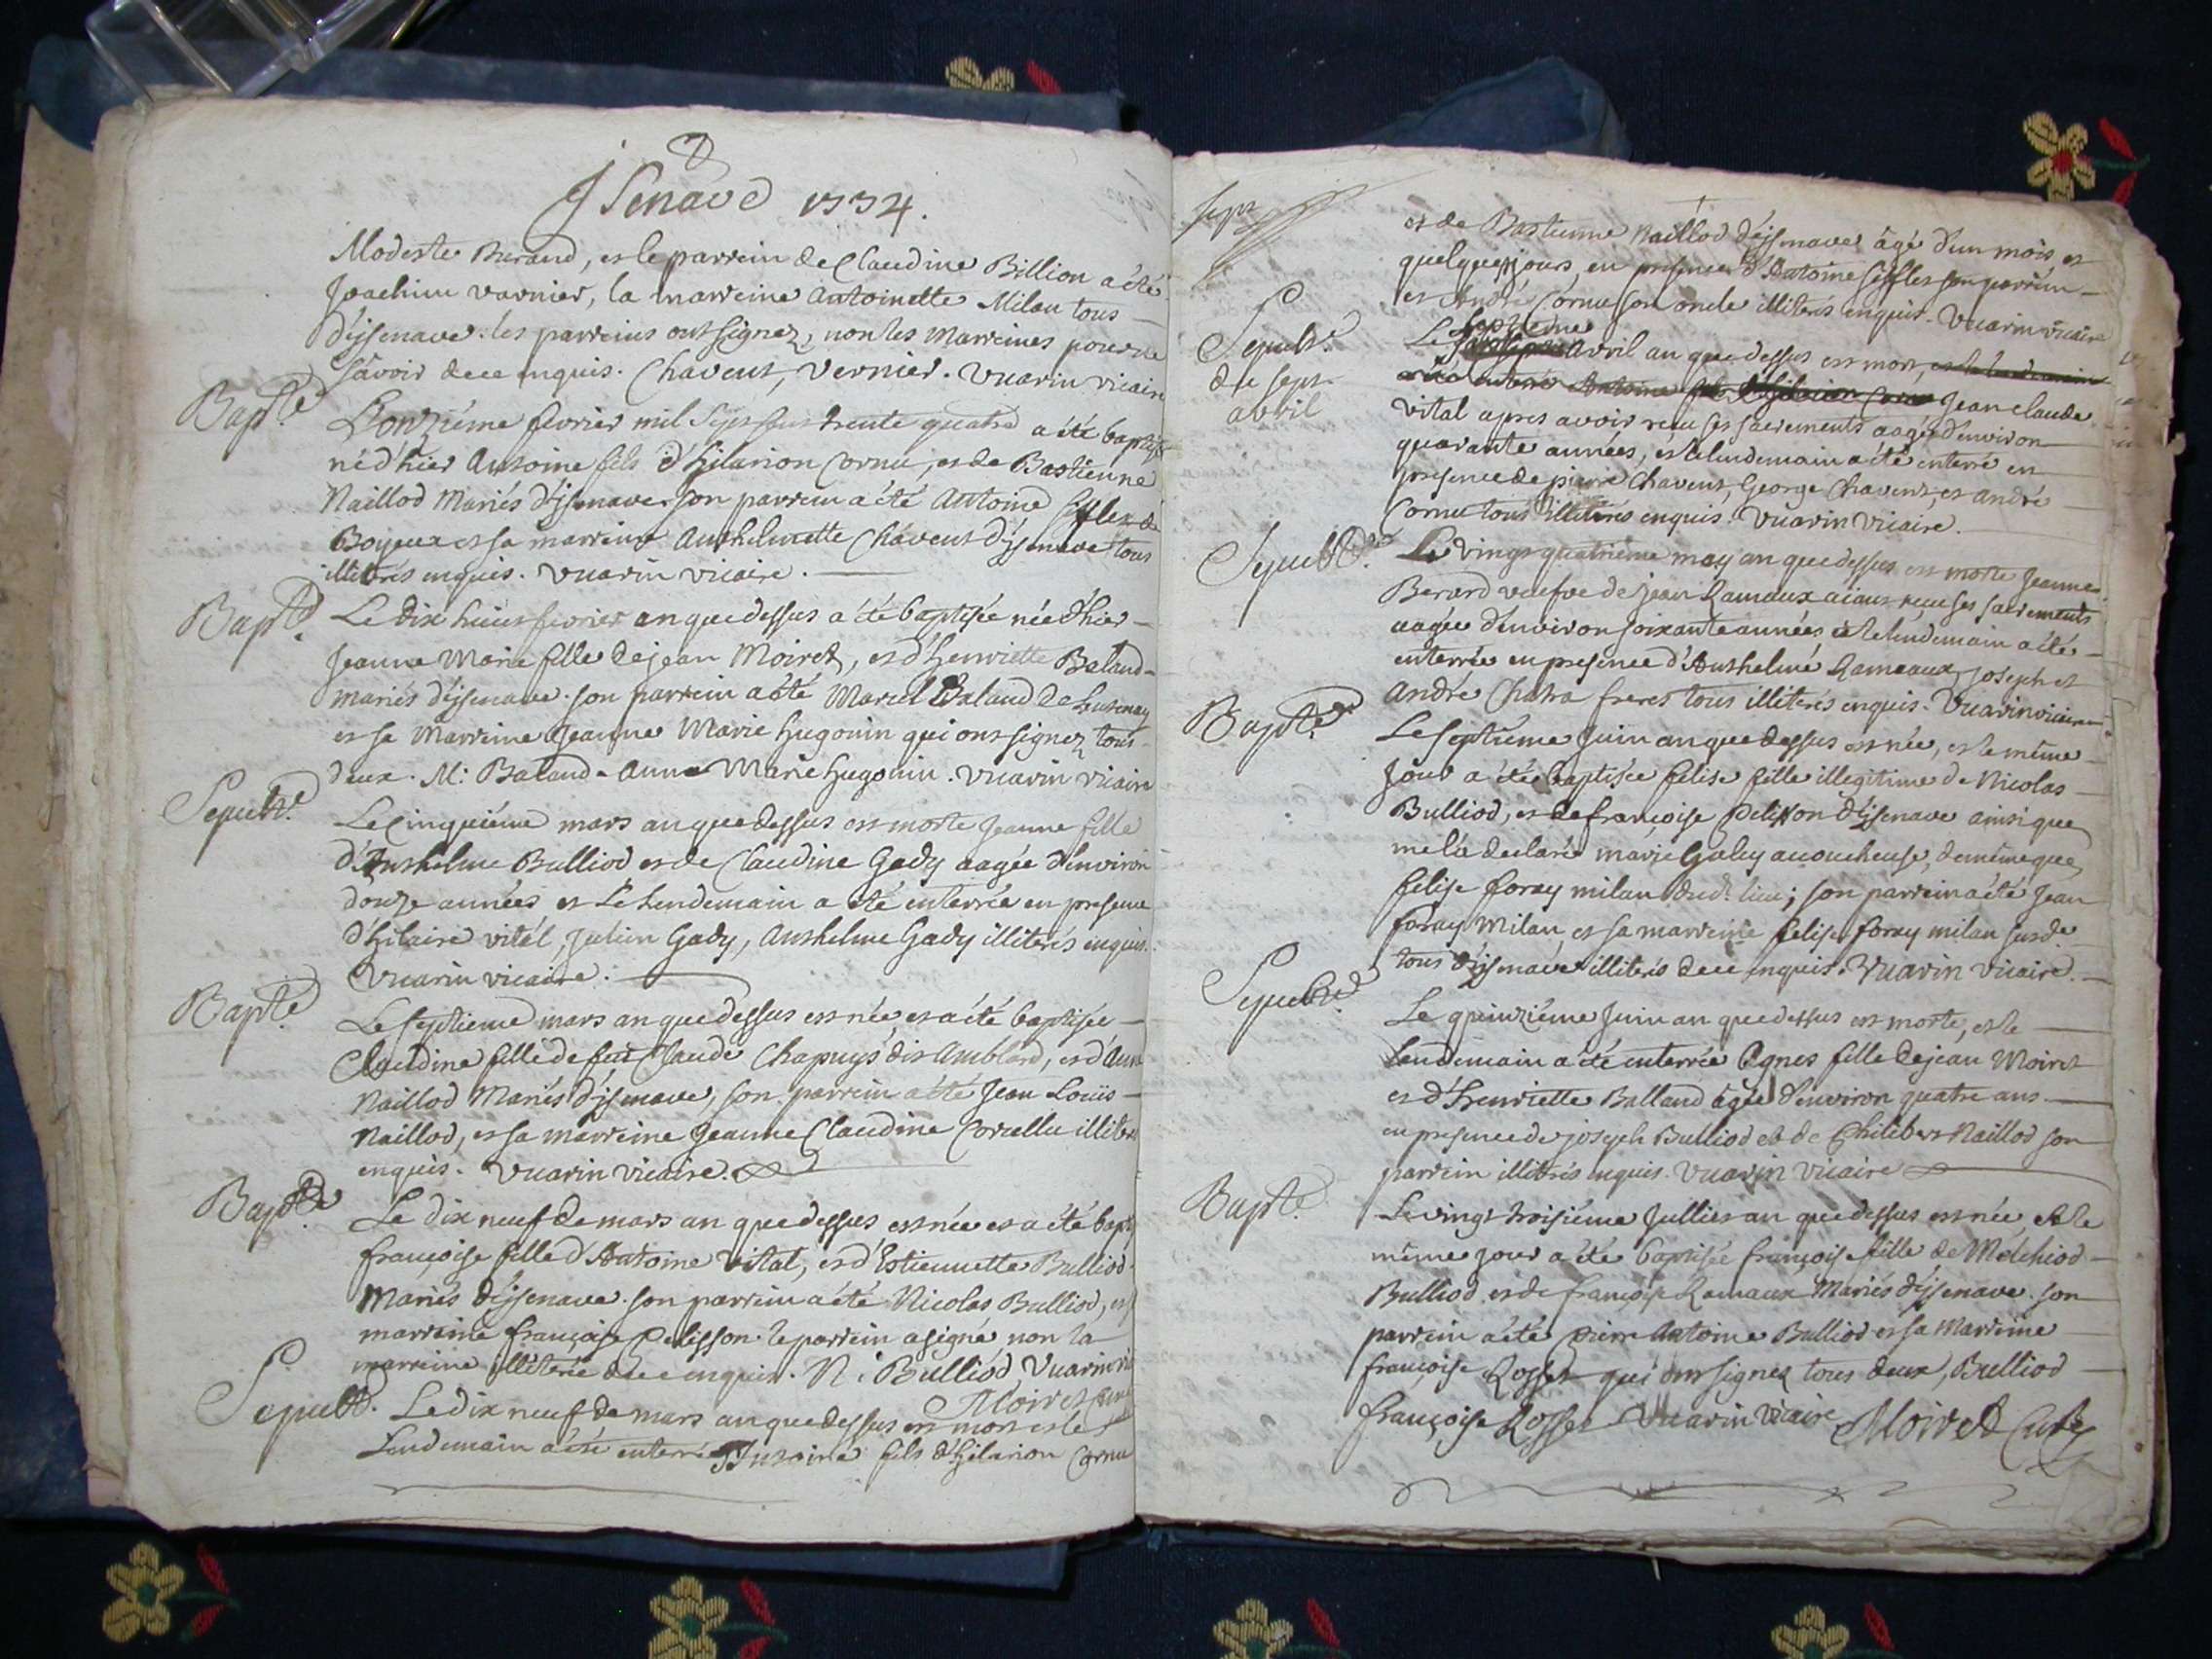 Isenave 1734.
Modeste Berand, et le parrein de Claudine Billion a été
Joachim varnier, la marreine Antoinette Milan tous
d'isenave. les parreins ont signez, non les Marreines pour ne
sçavoir de ce enquis. Chavent, Vernier. Vuarin vicaire
Bapt.e
L'onziéme fevrier mil sept sent trente quatre a été baptisé
né d'hier Antoine fils d'hilarion Cornu, et de Bastienne
Naillod Mariés d'isenave. son parrein a été Antoine
Boyeux et sa marreine Anthelmette Chavent d'isenave tous
illiterés enquis. Vuarin vicaire.
Bapt.e
Le dix huit fevrier an que dessus a été baptisée née d'hier
Jeanne Marie fille de jean Moiret, et d'henriette Baland
mariés d'isenave. son parrein a été Marcel Baland de
et sa Marreine Jeanne Marie hugonin qui ont signez tous
deux. M: Baland. Anne Marie hugonin. Vuarin vicaire
Sepult.e
Le cinquiéme mars an que dessus est morte Jeanne fille
d'Anthelme Bulliod et de Claudine Gady aagée d'environ
douze années et le lendemain a été enterrée en presence
d'hilaire vital, Julien Gady, Anthelme Gady illiterés enquis.
Vuarin vicaire.
Bapt.e
Le septieme mars an que dessus est née, et a été baptisée
Claudine fille de feu Claude Chapuys dit Amblard, et d'Anne
Naillod Mariés d'isenave, son parrein a été Jean Louis
Naillod, et sa marreine Jeanne Claudine Corcellu illiterés
enquis. Vuarin vicaire.
Bapt.e
Le dix neuf de mars an que dessus est née et a été bapt
françoise fille d'Antoine Vital, et d'Estiennette Bulliod
Mariés d'isenave. son parrein a été Nicolas Bulliod, et
marreine françoise Pelisson. le parrein a signé non la
marreine illiterée de ce enquise. N: Bulliod, Vuarin vic
Moiret curé
Sepult.e
Le dix neuf de mars an que dessus est mort et le
lendemain a été enterré Antoine fils d'hilarion Cornu
sept
et de Bastienne Naillod d'isenave âgé d'un mois et
quelques jours, en presence d'Antoine son parrein
et André Cornu son oncle illiterés enquis. Vuarin vicaire
Sepult.e
du sept
avril
septieme
Le avril an que dessus est mort, et le lendemain
a été enterré Antoine fils d'hilarion Cornu Jean claude
vital apres avoir reçu ses sacrements aagé d'environ
quarante années, et le lendemain a été enterré en
presence de pierre Chavent, George Chavent, et andré
Cornu tous illiterés enquis. Vuarin vicaire.
Sepult.e
Le vingt quatrieme may an que dessus est morte Jeanne
Berard veufve de jean Ramaux aiant reçu ses sacrements
aagée d'environ soixante années et le lendemain a été
enterrée en presence d'Anthelme Rameaux, joseph et
André Chatra freres tous illiterés enquis. Vuarin vicaire
Bapt.e
Le septiéme Juin an que dessus est née, et le même
jour a été baptisée felise fille illegitime de Nicolas
Bulliod, et de françoise Pelisson d'isenave ainsi que
me l'a declaré marie Goley acoucheuse, de même que
felise foray milan dud. lieu; son parrein a été Jean
foray Milan et sa marreine felise foray milan susd.e
tous d'isenave illiterés de ce enquis. Vuarin vicaire.
Sepult.e
Le quinziéme Juin an que dessus est morte, et le
lendemain a été enterrée Agnes fille de jean Moiret
et d'henriette Balland âgée d'environ quatre ans
en presence de joseph Bulliod et de Philibert Naillod son
parrein illiterés enquis. Vuarin vicaire
Bapt.e
Le vingt troisiéme Jullier an que dessus est née, et le
même jour a été baptisée françoise fille de Melchiod
Bulliod et de françoise Ramaux Mariés d'isenave. son
parrein a été pierre Antoine Bulliod et sa Marreine
françoise Rosset qui ont signez tous deux, Bulliod
françoise Rosset Vuarin vicaire Moiret Curé